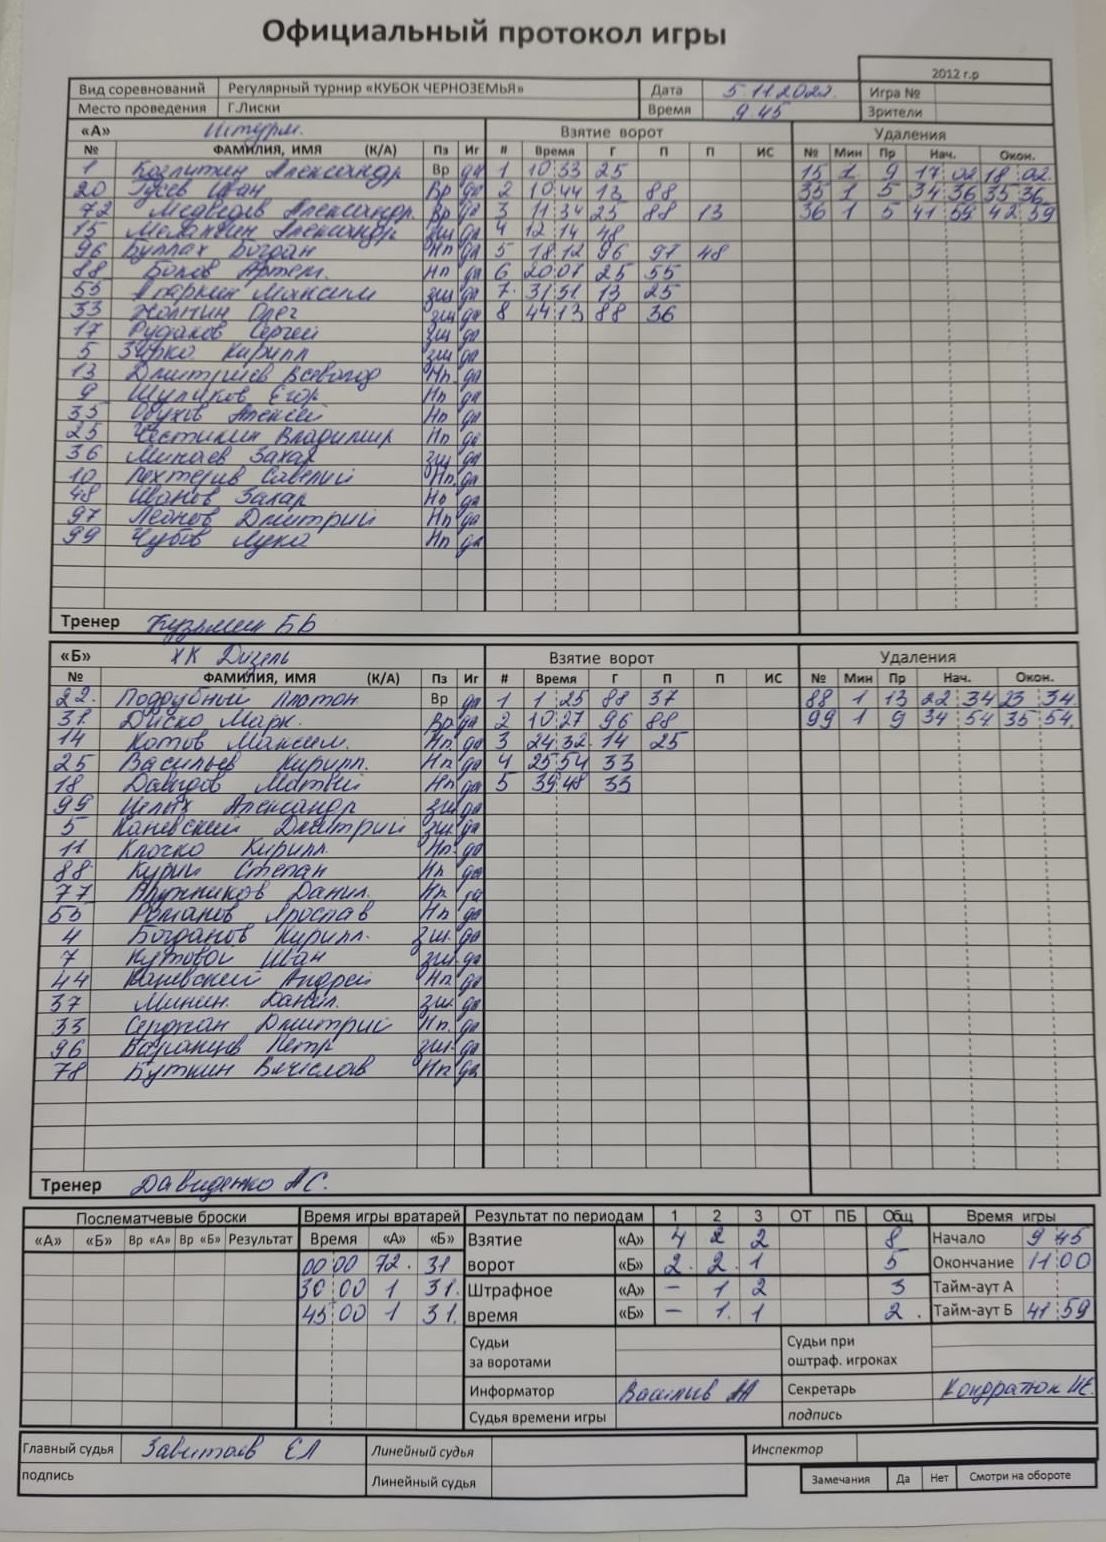 Официальный протокол игры
2012 г.р
Вид соревнований Регулярный турнир «КУБОК ЧЕРНОЗЕМЬЯ» Дата 5.11.202 Игра №
Место проведения Г.Лиски Время 9.45 Зрители
«А» Штурм. Взятие ворот Удаления
№ ФАМИЛИЯ, ИМЯ (К/А) Пз Иг # Время Г П П ИС № Мин Пр Нач. Окон.
1 Александр Вр да 1 10 33 25 15 1 9 17 02 18 02
20 Гусев Иван Вр да 2 10 44 13 88 35 1 5 34 36 35 36
72 Медведев Александр. Вр да 3 11 34 25 88 13 36 1 5 41 59 42 59
15 Александр зщ да 4 12 14 48
96 Буллах Богдан Нп да 5 18 12 96 97 48
88 Болов Артем. Нп да 6 20 01 25 55
55 Максим зщ да 7. 31 51 13 25
33 Олег зщ да 8 44 13 88 36
17 Рудаков Сергей зщ да
5 Зирко Кирилл зщ да
13 Дмитриев Всеволод Нп. да
9 Шупиков Егор Нп да
35 Обухов Алексей Нп да
25 Честикин Владимир Нп да
36 Минаев Захар зщ да
10 Савелий Нп да
48 Иванов Захар Нп да
97 Леонов Дмитрий Нп да
99 Чубов Лука Нп да
Тренер Кузьмин ББ
«Б» ХК Дизель Взятие ворот Удаления
№ ФАМИЛИЯ, ИМЯ (К/А) Пз Иг # Время Г П П ИС № Мин Пр Нач. Окон.
22. Поддубный Платон Вр да 1 1 25 88 37 88 1 13 22 34 23 34
31. Диско Марк. Вр да 2 10 27 96 88 99 1 9 34 54 35 54.
14 Котов Максим. Нп. да 3 24 32. 14 25
25 Васильев Кирилл. Нп да 4 25 54 33
18 Давидов Матвей Нп да 5 39 48 33
99 Александр зщ да
5 Каневский Дмитрий зщ да
11 Клочко Кирилл. Нп. да
88 Курий Степан Нп да
77 Данил. Нп. да
55 Романов Ярослав Нп да
4 Богданов Кирилл. зщ. да
7 Кутовой Иван зщ. да
44 Каневский Андрей Нп. да
37 Минин. Данил. зщ. да
33 Дмитрий Нп. да
96 Петр зщ. да
78 Буткин Вячеслав Нп да
Тренер Давиденко АС.
Послематчевые броски Время игры вратарей Результат по периодам 1 2 3 ОТ ПБ Общ Время игры
«А» «Б» Вр «А» Вр «Б» Результат Время «А» «Б» Взятие «А» 4 2 2 8 Начало 9 45
00 00 72. 31 ворот «Б» 2. 2. 1 5 Окончание 11 00
30 00 1 31. Штрафное «А» – 1 2 3 Тайм-аут А
45 00 1 31. время «Б» – 1. 1 2. Тайм-аут Б 41 59
Судьи за воротами Судьи при оштраф. игроках
Информатор Секретарь Кондратюк
Судья времени игры подпись
Главный судья ЕЛ Линейный судья Инспектор
подпись Линейный судья Замечания Да Нет Смотри на обороте